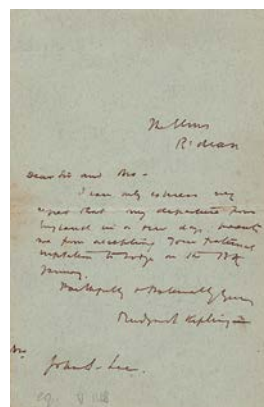 The Elms
R'dean
Dear Sir and Bro -
I can only express my
regret that my departure from
England in a few days prevents
me from accepting your fraternal
invitation to Lodge on the
January.
Faithfully & fraternally yours
Rudyard Kipling
John S. Lee.